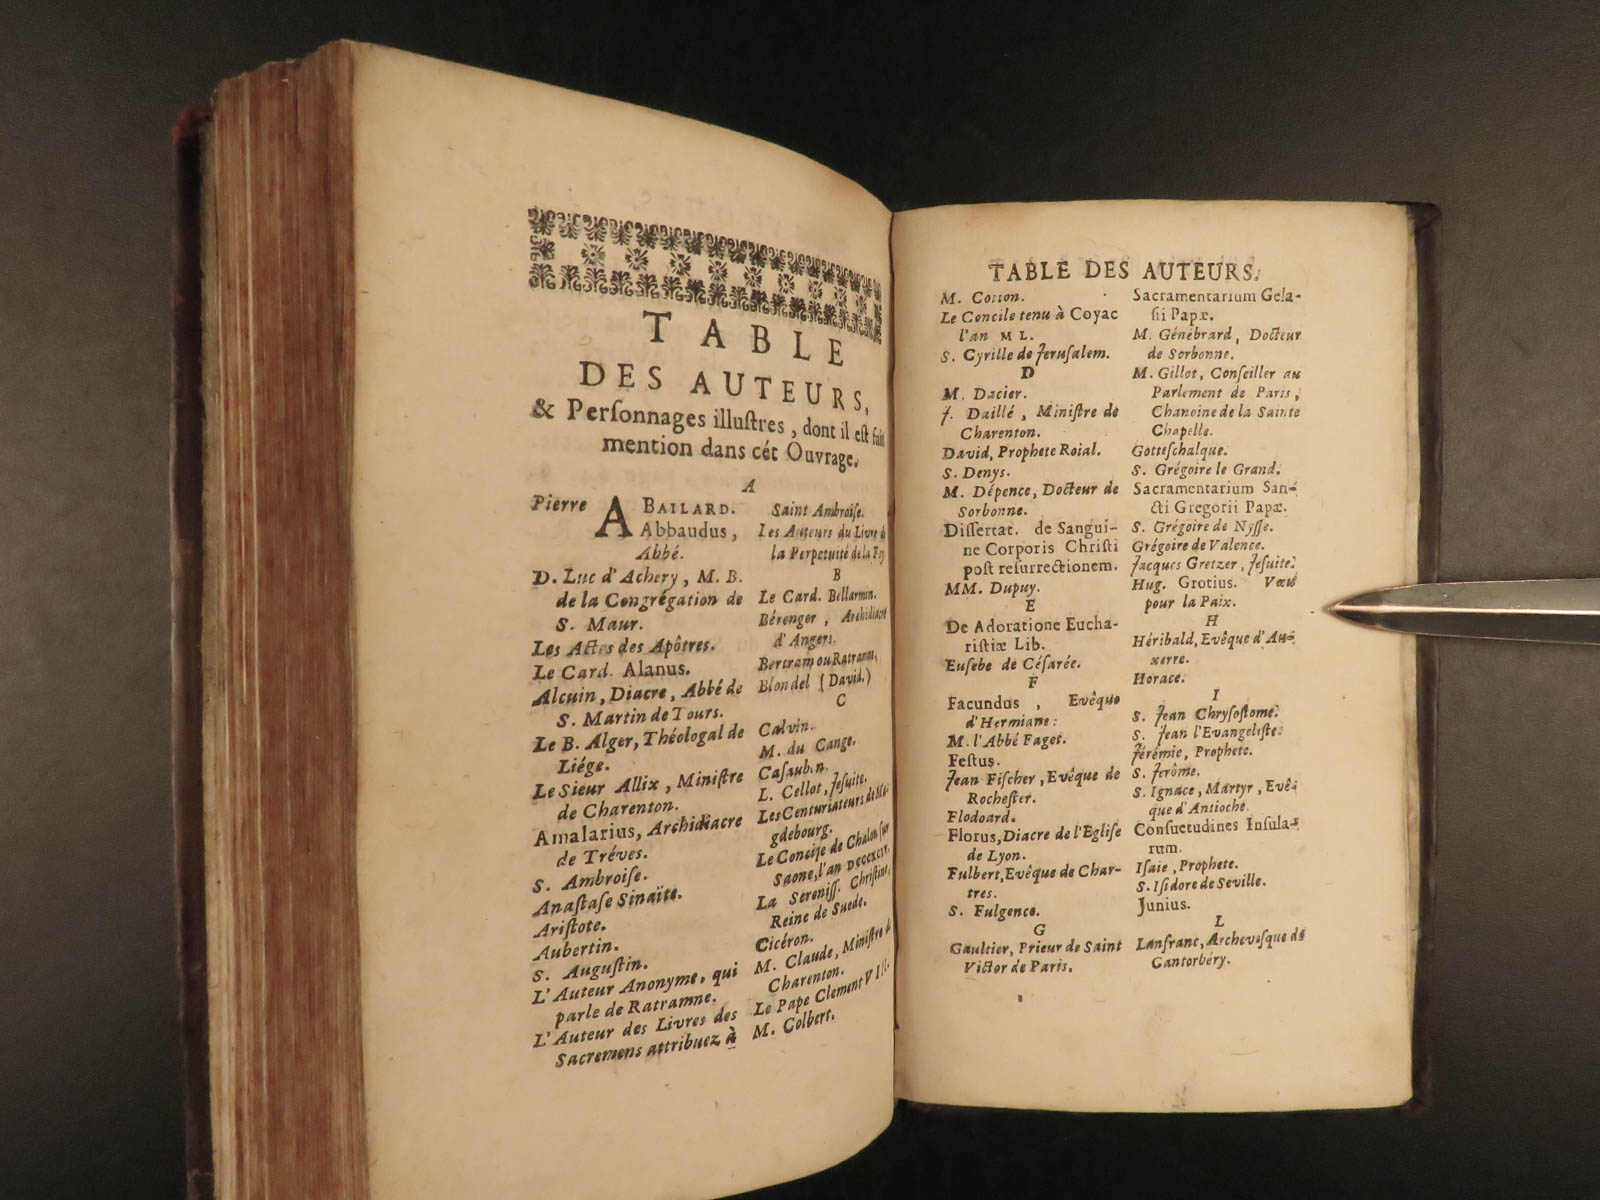 TABLE
DES AUTEURS,
& Perſonnages illuſtres, dont il est fait
mention dans cét Ouvrage.
A
Pierre ABAILARD.
Abbaudus,
Abbé.
D. Luc d'Achery, M. B.
de la Congrégation de
S. Maur.
Les Actes des Apôtres.
Le Card. Alanus.
Alcuin, Diacre, Abbé de
S. Martin de Tours.
Le B. Alger, Théologal de
Liége.
Le Sieur Allix, Miniſtre
de Charenton.
Amalarius, Archidiacre
de Tréves.
S. Ambroiſe.
Anaſtaſe Sinaïte.
Ariſtote.
Aubertin.
S. Auguſtin.
L'Auteur Anonyme, qui
parle de Ratramne.
L'Auteur des Livres des
Sacremens attribuez à
Saint Ambroiſe.
Les Auteurs du Livre de
la Perpetuité de la Foy
B
Le Card. Bellarmin.
Bérenger, Archidiacre
d'Angers.
Bertram ou Ratramn,
Blondel (David.)
C
Calvin.
M. du Cange.
Caſaubon.
L. Cellot, Jeſuite.
Les Centuriateurs de Ma-
gdebourg.
Le Concile de Chalon ſur
Saone, l'an DCCCXCIV.
La Séréniſſ. Chriſtine,
Reine de Suede.
Cicéron.
M. Claude, Miniſtre de
Charenton.
Le Pape Clement VIII.
M. Colbert.
TABLE DES AUTEURS.
M. Cotton.
Le Concile tenu à Coyac
l'an ML.
S. Cyrille de Jeruſalem.
D
M. Dacier.
J. Daillé, Miniſtre de
Charenton.
David, Prophete Roial.
S. Denys.
M. Dépence, Docteur de
Sorbonne.
Diſſertat. de Sangui-
ne Corporis Chriſti
poſt reſurrectionem.
MM. Dupuy.
E
De Adoratione Eucha-
riſtiæ Lib.
Euſebe de Céſarée.
F
Facundus, Evêque
d'Hermiane:
M. l'Abbé Faget.
Feſtus.
Jean Fiſcher, Evêque de
Rocheſter.
Flodoard.
Florus, Diacre de l'Egliſe
de Lyon.
Fulbert, Evêque de Char-
tres.
S. Fulgence.
G
Gaultier, Prieur de Saint
Victor de Paris.
Sacramentarium Gela-
ſii Papæ.
M. Génébrard, Docteur
de Sorbonne.
M. Gillot, Conſeiller au
Parlement de Paris,
Chanoine de la Sainte
Chapelle.
Gotteſchalque.
S. Grégoire le Grand.
Sacramentarium San-
cti Gregorii Papæ.
S. Grégoire de Nyſſe.
Grégoire de Valence.
Jacques Gretzer, Jeſuite.
Hug. Grotius. Vœu
pour la Paix.
H
Héribald, Evêque d'Au-
xerre.
Horace.
I
S. Jean Chryſoſtome.
S. Jean l'Evangeliſte.
Jérémie, Prophete.
S. Jerôme.
S. Ignace, Martyr, Evê-
que d'Antioche.
Conſuetudines Inſula-
rum.
Iſaie, Prophete.
S. Iſidore de Seville.
Junius.
L
Lanfranc, Archeveſque de
Cantorbéry.